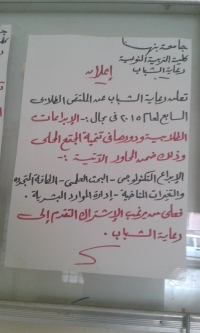 جامعة بنها
كلية التربية النوعية
رعاية الشباب
إعلان
تعلن رعاية الشباب عن الملتقى الطلابى
السابع لعام ٢٠١٥ فى مجال :- الإبداعات
الطلابية ودورها فى تنمية المجتمع المحلى
وذلك ضمن المحاور الآتية :-
الإبداع التكنولوجى - البحث العلمى - الطاقة المتجددة
والتغيرات المناخية - إدارة الموارد البشرية .
فعلى من يرغب الإشتراك التقدم إلى
رعاية الشباب .